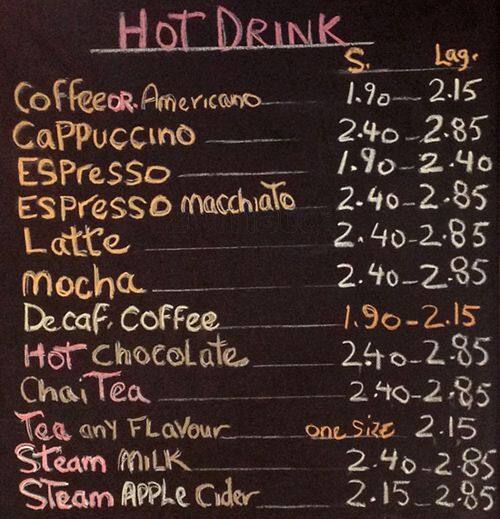 HOT DRINK
S. Lag.
Coffee OR. Americano 1.90 - 2.15
Cappuccino 2.40 - 2.85
ESPresso 1.90 - 2.40
ESPresso macchiato 2.40 - 2.85
Latte 2.40 - 2.85
mocha 2.40 - 2.85
Decaf. Coffee 1.90 - 2.15
Hot Chocolate 2.40 - 2.85
Chai Tea 2.40 - 2.85
Tea any Flavour one Size 2.15
Steam MILK 2.40 - 2.85
Steam APPLe Cider 2.15 - 2.85